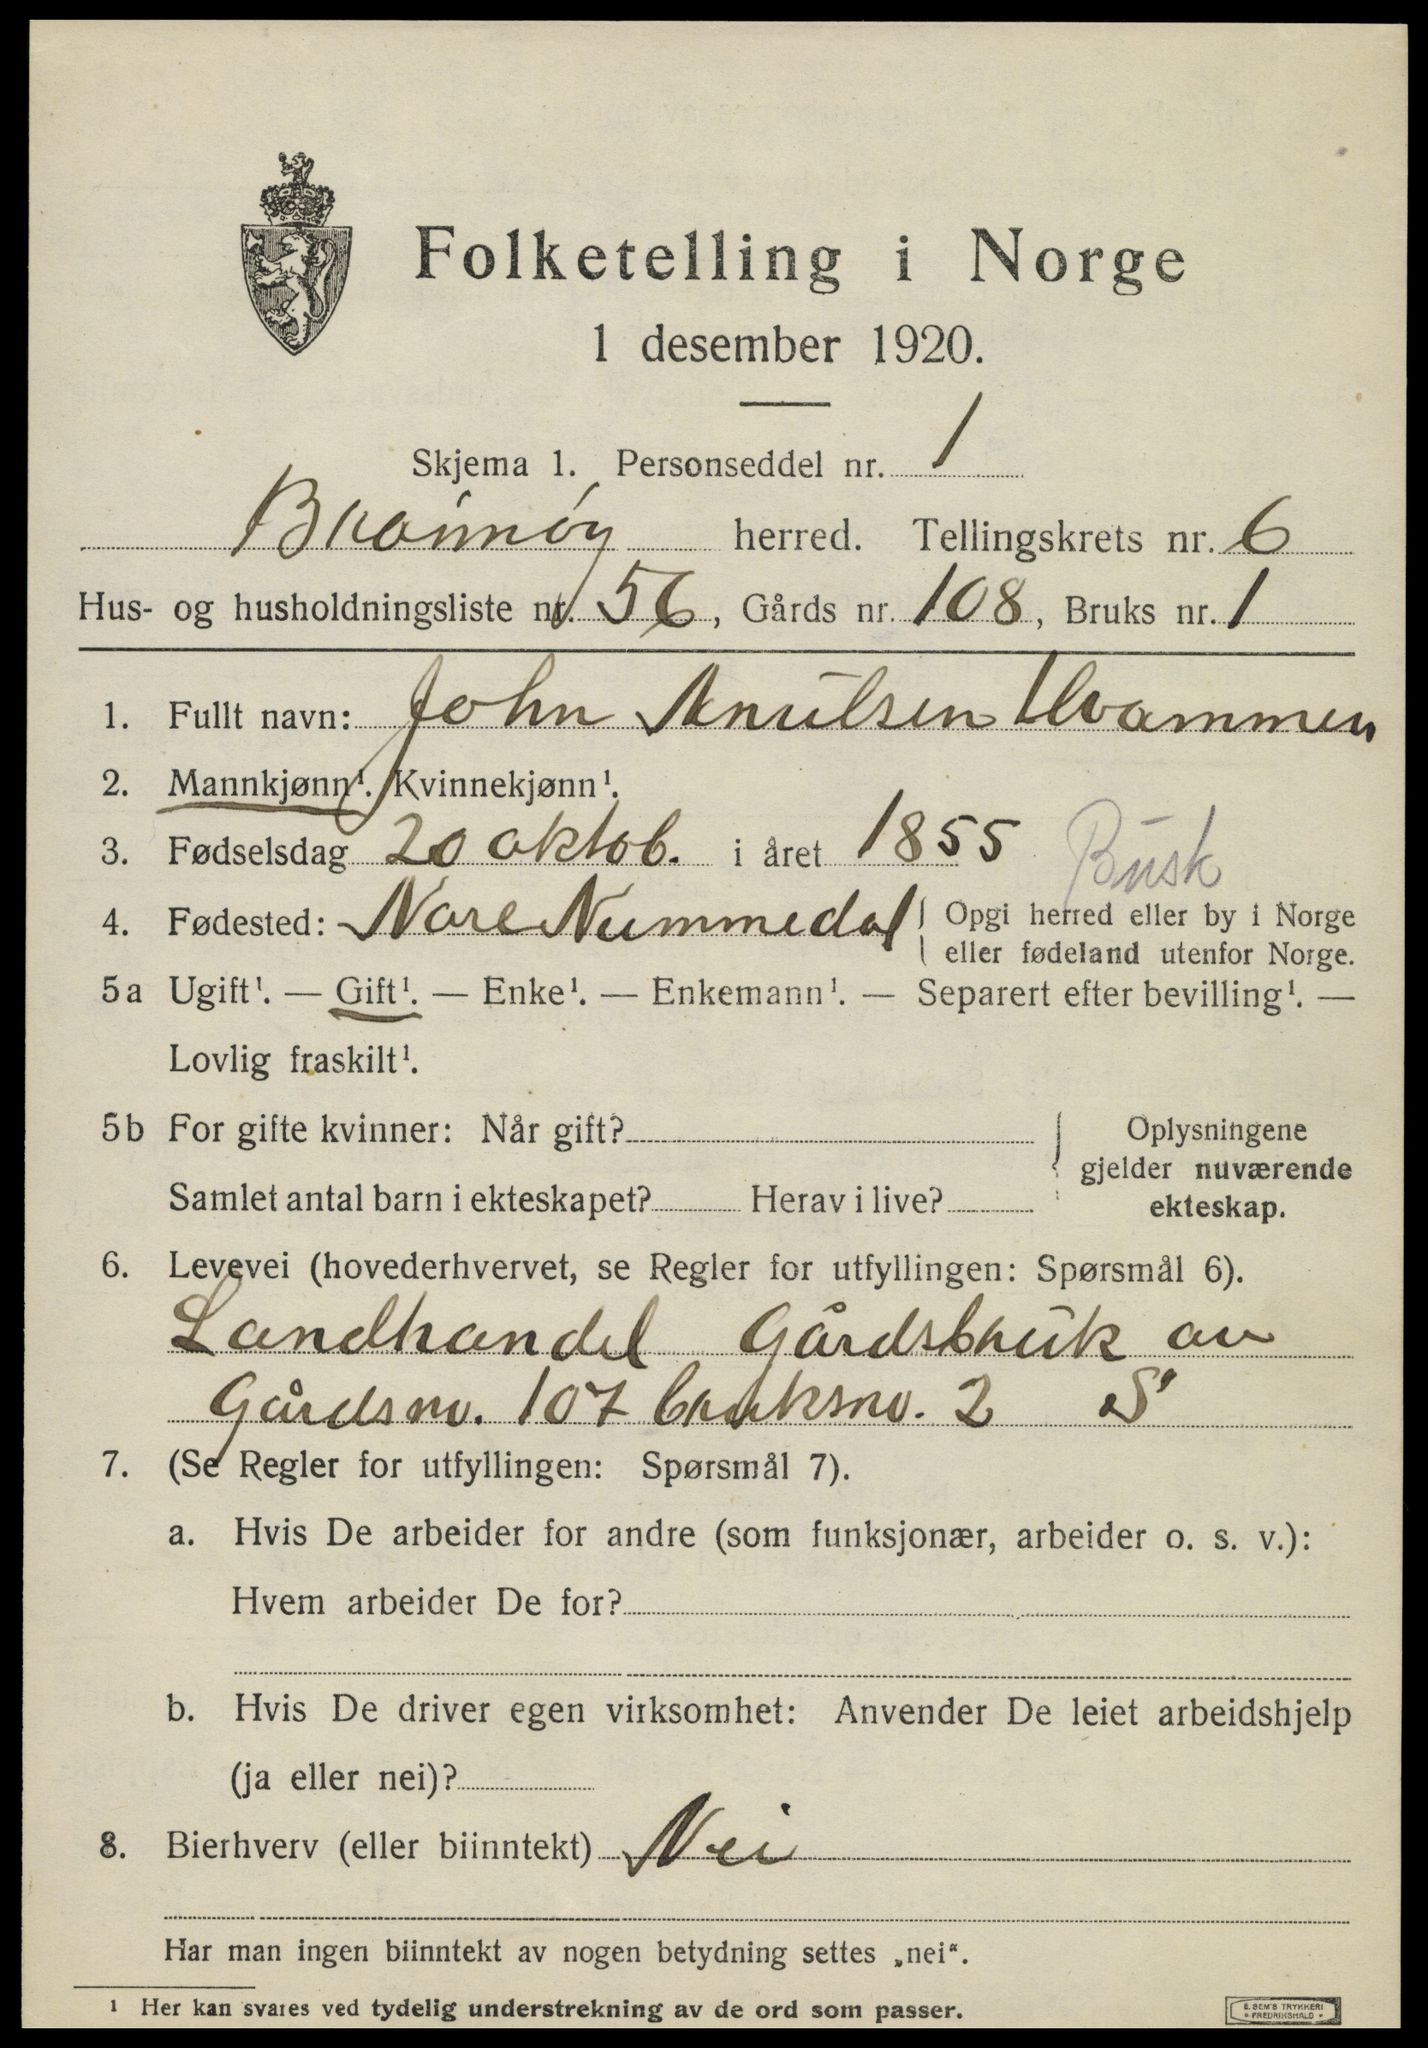 Folketelling i Norge
1 desember 1920.
Skjema 1. Personseddel nr. 1
Brønnøy herred. Tellingskrets nr. 6
Hus- og husholdningsliste nr. 56, Gårds nr. 108, Bruks nr. 1
1. Fullt navn: John Knutsen Hvammen
2. Mannkjønn¹. Kvinnekjønn¹.
3. Fødselsdag 20 oktob. i året 1855
Busk
4. Fødested: Nore Nummedal { Opgi herred eller by i Norge
eller fødeland utenfor Norge.
5a Ugift¹. — Gift¹. — Enke¹. — Enkemann¹. — Separert efter bevilling¹. —
Lovlig fraskilt¹.
5b For gifte kvinner: Når gift?
Samlet antal barn i ekteskapet? Herav i live?
Oplysningene
gjelder nuværende
ekteskap.
6. Levevei (hovederhvervet, se Regler for utfyllingen: Spørsmål 6).
Landhandel Gårdsbruk av
Gårdsno. 107 bruksno. 2 S
7. (Se Regler for utfyllingen: Spørsmål 7).
a. Hvis De arbeider for andre (som funksjonær, arbeider o. s. v.):
Hvem arbeider De for?
b. Hvis De driver egen virksomhet: Anvender De leiet arbeidshjelp
(ja eller nei)?
8. Bierhverv (eller biinntekt) Nei
Har man ingen biinntekt av nogen betydning settes „nei“.
¹ Her kan svares ved tydelig understrekning av de ord som passer.
E. SEM'S TRYKKERI
FREDRIKSHALD